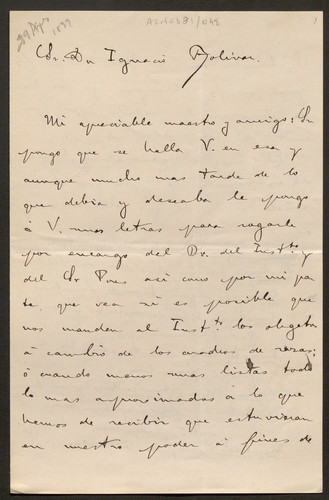 29 Agto 1899
Sr. Dn Ignacio Bolivar.
Mi apreciable maestro y amigo: Su
pongo que se halla V. en esa y
aunque mucho mas tarde de lo
que debia y deseaba le pongo
á V. unas letras para rogarle
por encargo del Dr. del Instto y
del Sr Pons asi como por mi par
te, que vea si es posible que
nos manden al Instto los objetos
á cambio de los cuadros de razas;
ó cuando menos unas listas todo
lo mas aproximadas á lo que
hemos de recibir que estuvieran
en nuestro poder á fines de